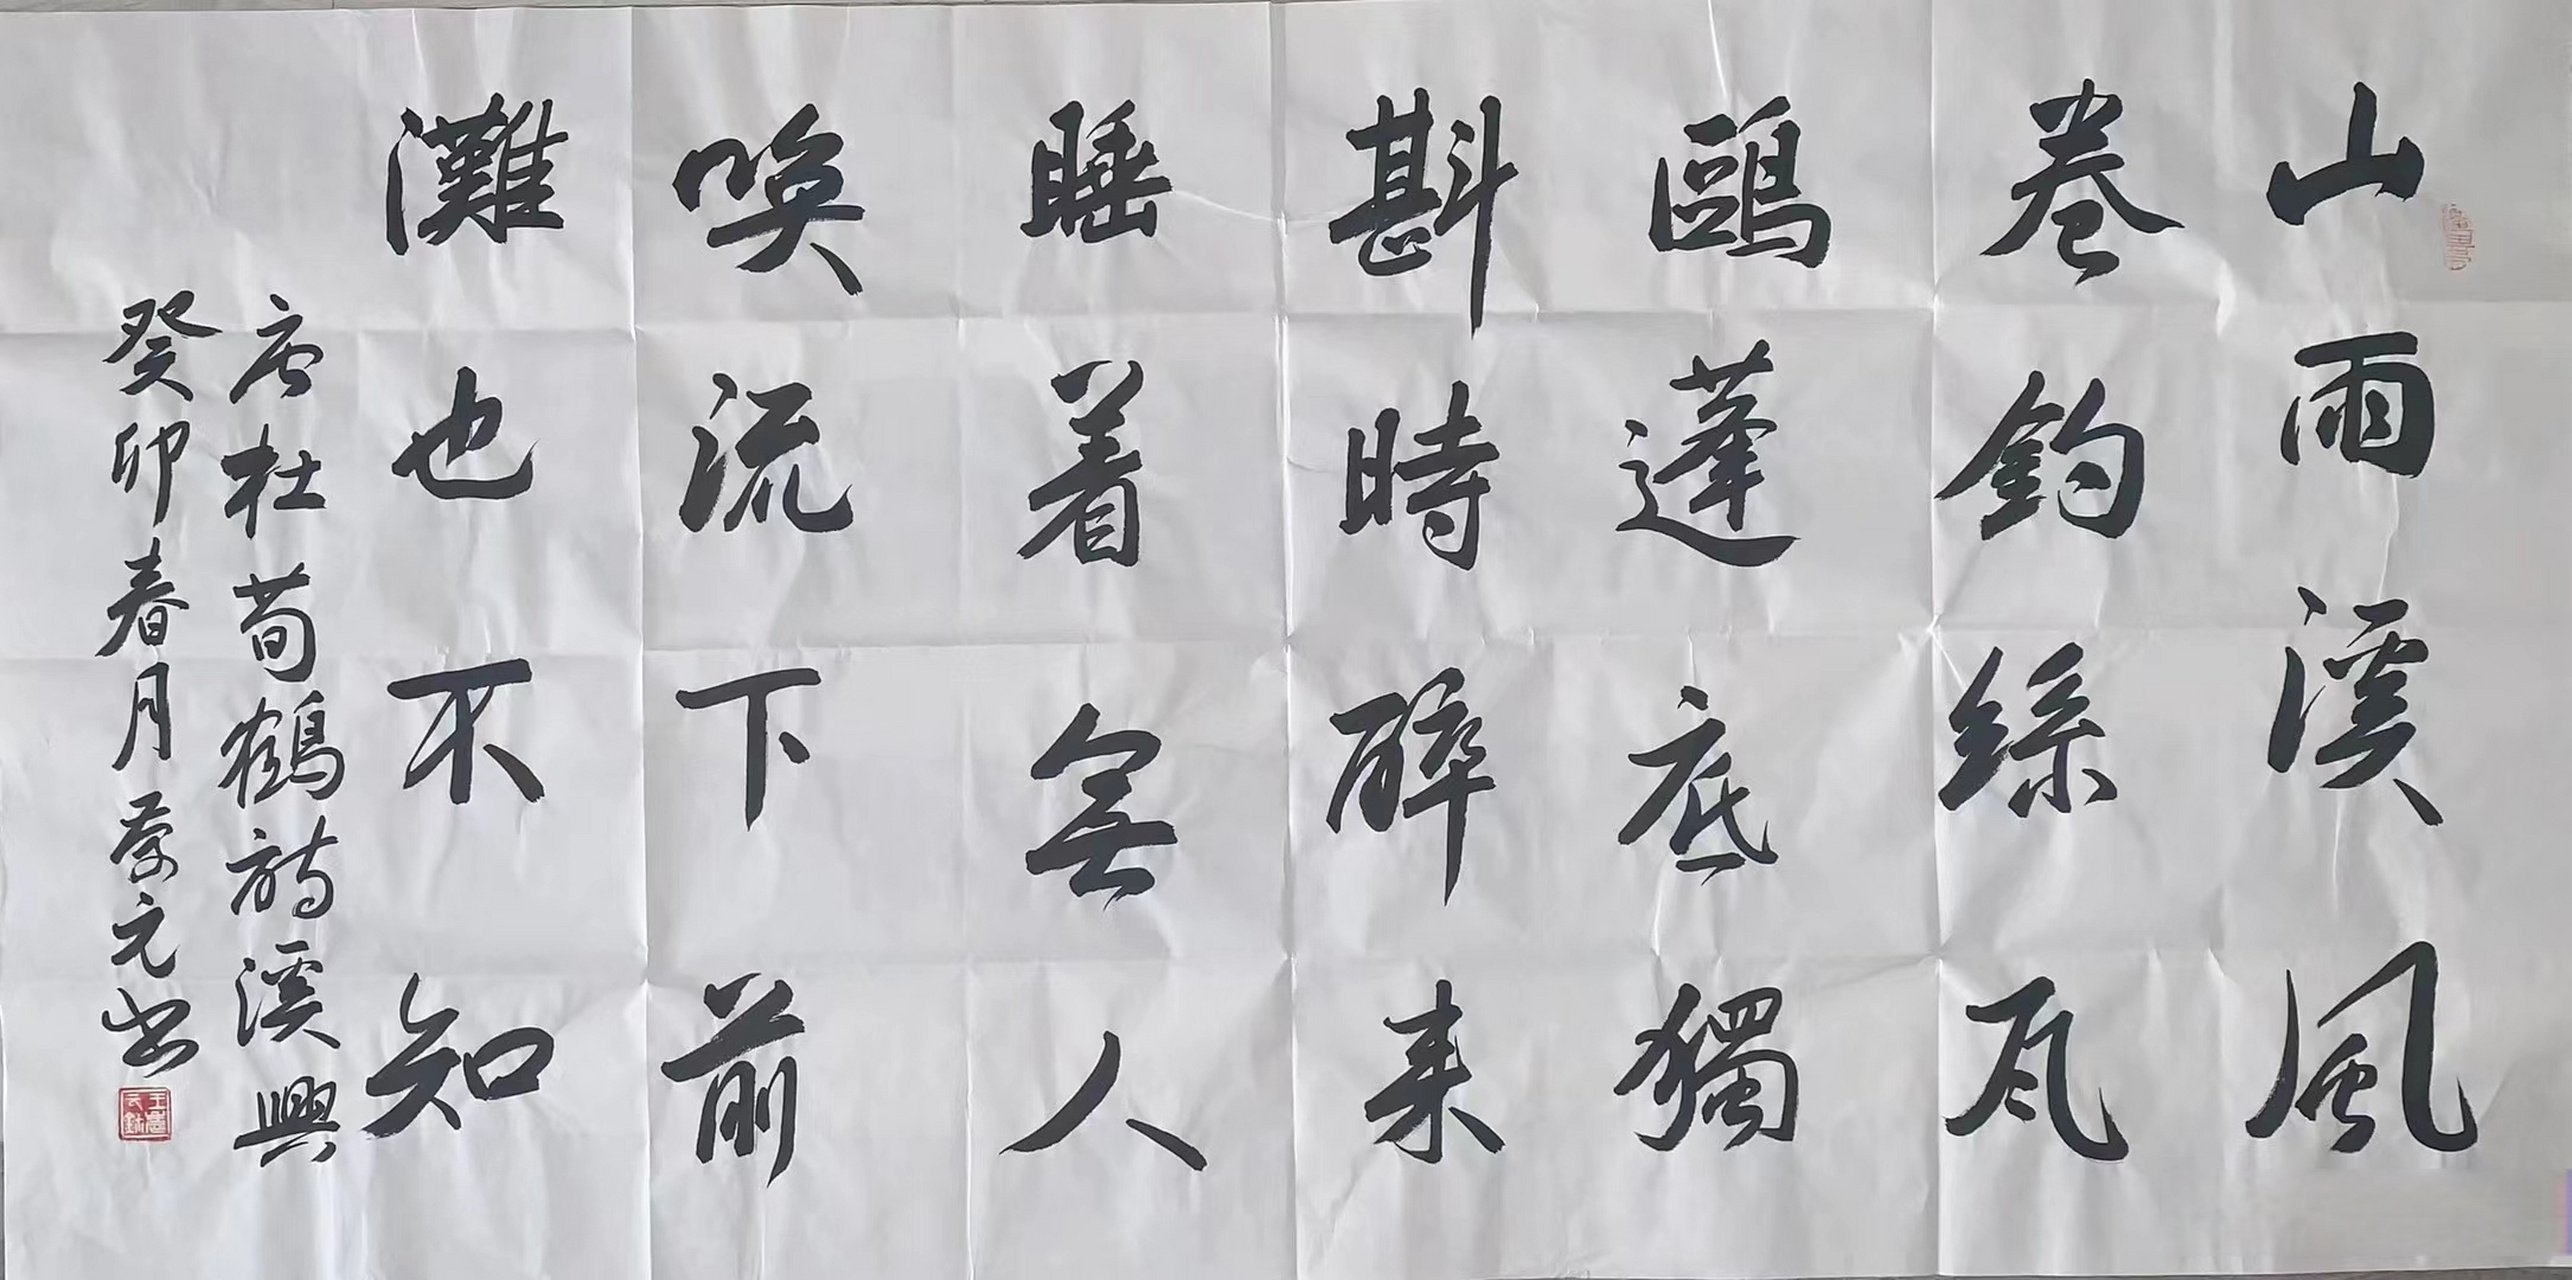 山雨溪風
卷釣絲瓦
鷗蓬底獨
斟時醉来
睡着無人
唤流下前
灘也不知
唐杜荀鶴詩溪興
癸卯春月慶元书